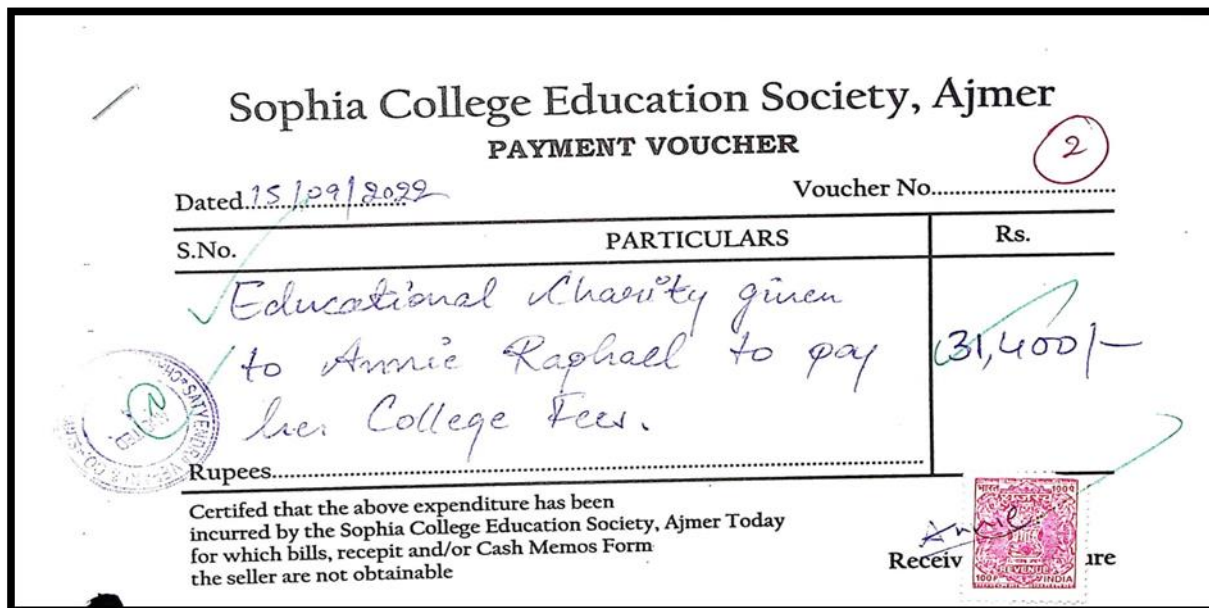 Sophia College Education Society, Ajmer
PAYMENT VOUCHER
2
Dated 15/09/2022 Voucher No.
S.No. PARTICULARS Rs.
Educational Charity given
to Annie Raphael to pay 31,400/-
her College Fees.
Rupees
Certifed that the above expenditure has been
incurred by the Sophia College Education Society, Ajmer Today
for which bills, recepit and/or Cash Memos Form
the seller are not obtainable
Annie
Receiv ure
भारत 100प
REVENUE
100P INDIA
SATVENDRA